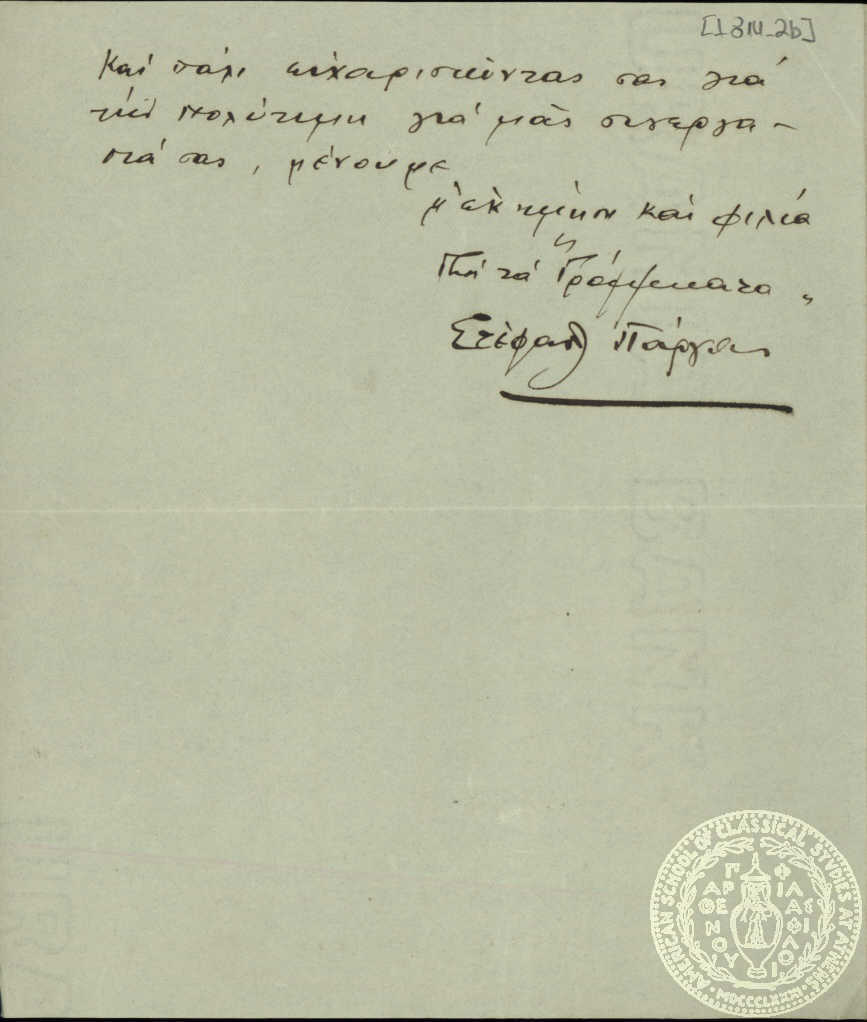 [1314-2b]
Καὶ πάλι εὐχαριστῶντας σας γιὰ
τὴν πολύτιμη γιὰ μᾶς συνεργα-
σιά σας, μένουμε
μ' ἐκτίμηση καὶ φιλία
Γιὰ τὰ "Γράμματα"
Στέφανος Πάργας
AMERICAN SCHOOL OF CLASSICAL STUDIES AT ATHENS
ΠΑΡΘΕΝΟΥ ΦΙΛΑΣ ΦΙΛΟΙ
MDCCCLXXXI